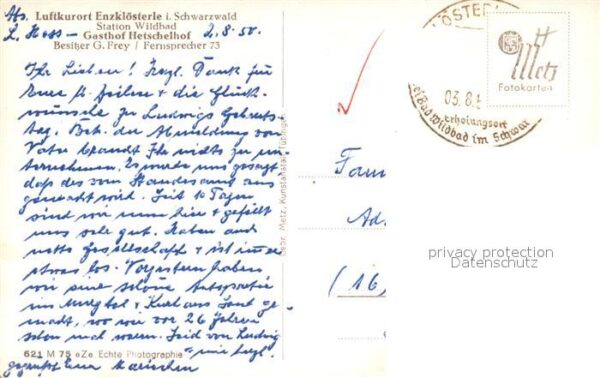 Abs. Luftkurort Enzklösterle i. Schwarzwald
Station Wildbad
L. Hess - Gasthof Hetschelhof 2.8.50.
Besitzer G. Frey / Fernsprecher 73
Ihr Lieben! Herzl. Dank für
Eure l. Zeilen & die Glück-
wünsche zu Ludwigs Geburts-
tag. Betr. der Abmeldung von
Vater braucht Ihr nichts zu un-
ternehmen. Es wurde uns gesagt
daß das vom Standesamt aus
gemacht wird. Seit 10 Tagen
sind wir nun hier & gefällt
uns sehr gut. Haben auch
nette Gesellschaft & ist immer
etwas los. Vorgestern haben
wir eine schöne Autopartie
ins Murgtal & Kurhaus Sand ge-
macht, wo wir vor 26 Jahren
schon mal waren. Seid von Ludwig
& mir herzl.
gegrüßt Eure
621 M 75 eZe Echte Photographie
Gebr. Metz, Kunstanstalt, Tübingen
KLÖSTER
03.8.5
erholungsort
Wildbad im Schwar
Metz
Fotokarten
Fam
Ad
(16)
privacy protection
Datenschutz